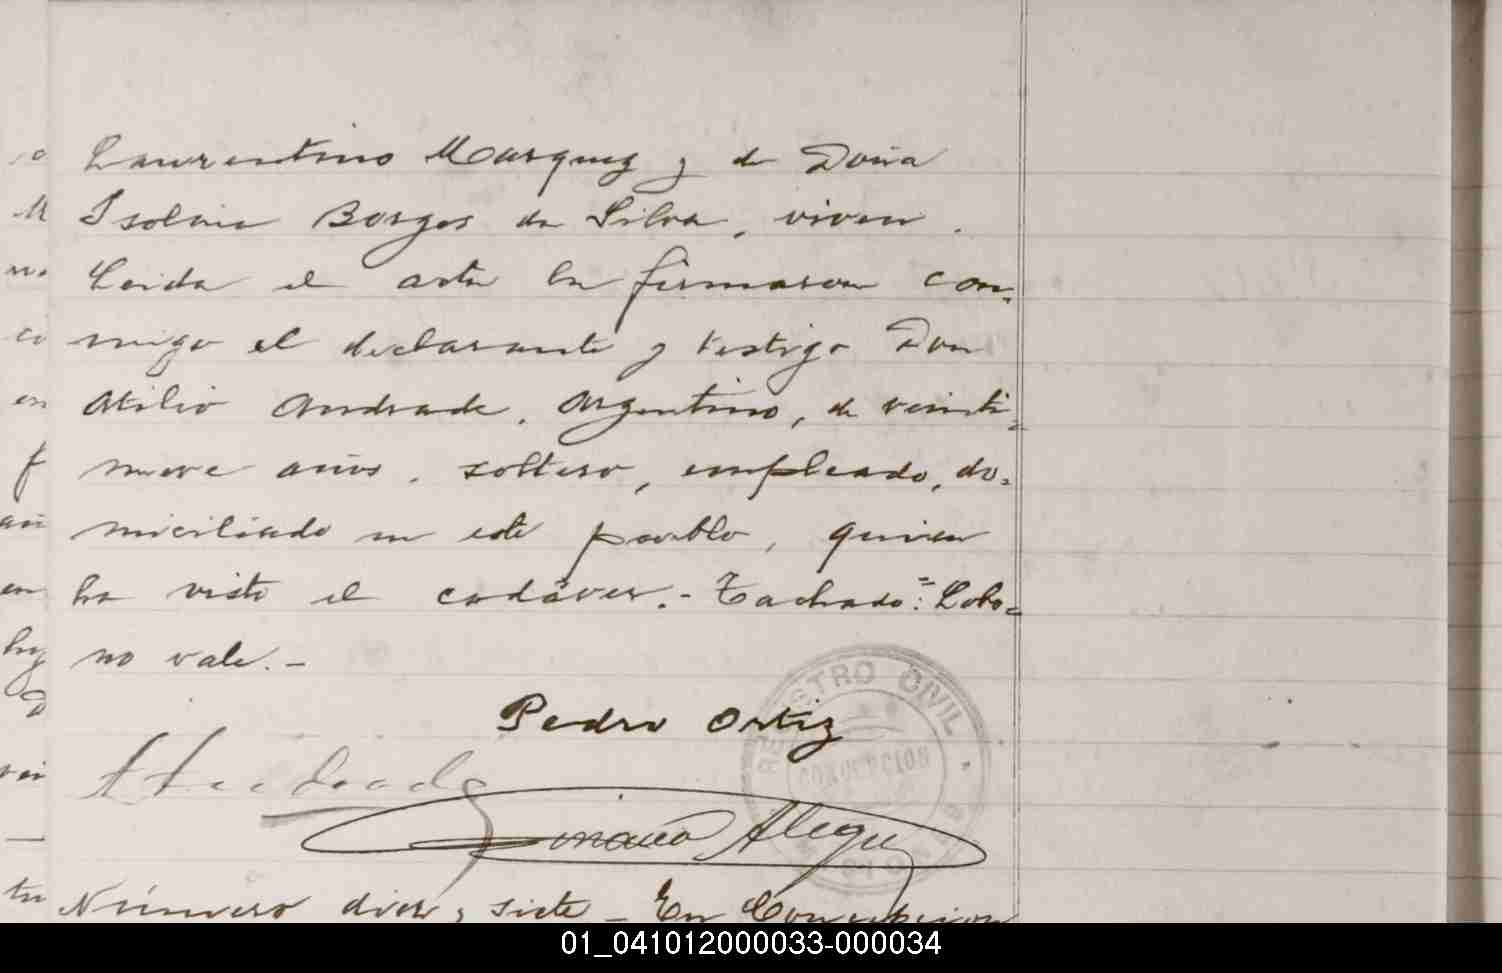 Laurentino Marquez y de Doña
Isolina Borges da Silva, viven.
Leida el acta la firmaron con-
migo el declarante y testigo Don
Atilio Andrade, Argentino, de veinti-
nueve años, soltero, empleado, do-
miciliado en este pueblo, quien
ha visto el cadáver.- Tachado: Lobo=
no vale.-
REGISTRO CIVIL
CONCEPCION
Pedro Ortiz
Alegre
Número diez y siete - En Concepcion
01_041012000033-000034